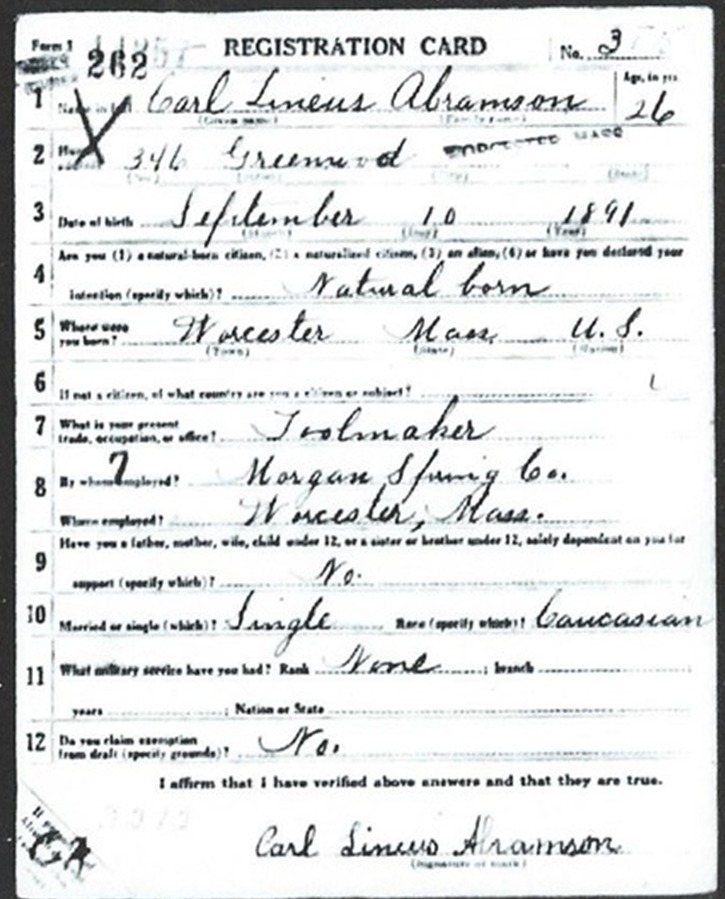 Form 1 REGISTRATION CARD No. 3
262
1 Name in full Carl Lineus Abramson Age, in yrs
(Given name) (Family name) 26
2 Home address 346 Greenwood WORCESTER MASS
(No.) (Street) (City) (State)
3 Date of birth September 10 1891
(Month) (Day) (Year)
Are you (1) a natural-born citizen, (2) a naturalized citizen, (3) an alien, (4) or have you declared your
4 intention (specify which)? Natural born
5 Where were you born? Worcester Mass. U. S.
(Town) (State) (Nation)
6 If not a citizen, of what country are you a citizen or subject?
7 What is your present trade, occupation, or office? Toolmaker
8 By whom employed? 7 Morgan Spring Co.
Where employed? Worcester, Mass.
Have you a father, mother, wife, child under 12, or a sister or brother under 12, solely dependent on you for
9 support (specify which)? No.
10 Married or single (which)? Single Race (specify which)? Caucasian
11 What military service have you had? Rank None ; branch
years ; Nation or State
12 Do you claim exemption from draft (specify grounds)? No.
I affirm that I have verified above answers and that they are true.
Carl Lineus Abramson
(Signature or mark)